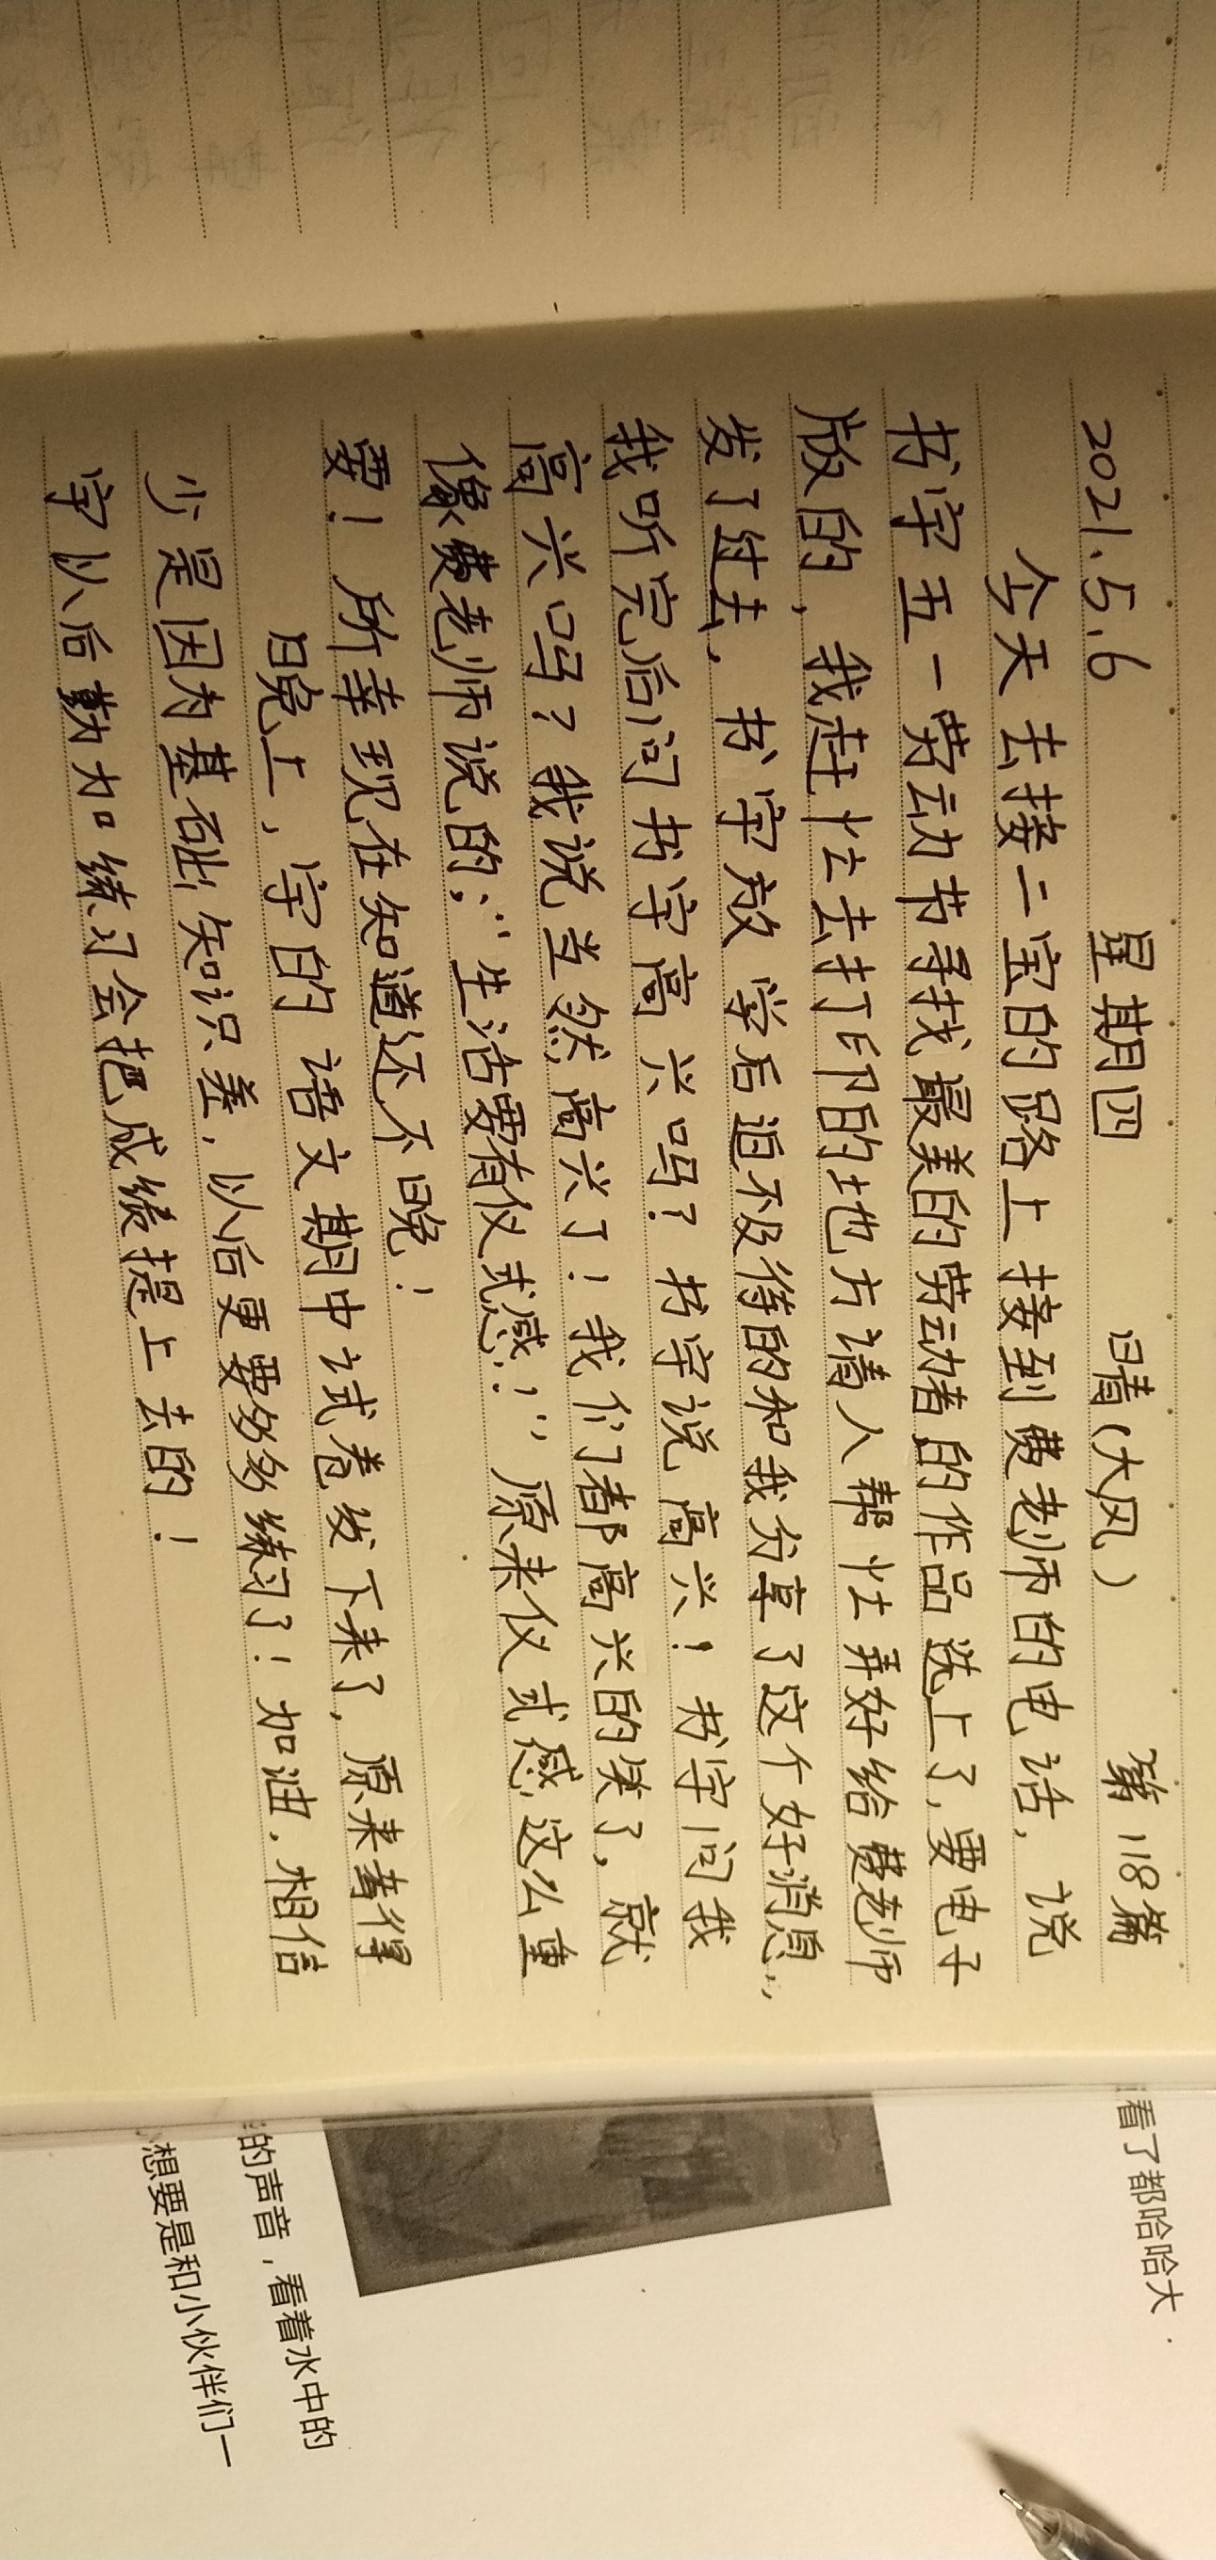 2021.5.6 星期四 晴(大风) 第118篇
今天去接二宝的路上接到费老师的电话,说
书宇五一劳动节寻找最美的劳动者的作品选上了,要电子
版的,我赶忙去打印的地方请人帮忙弄好给费老师
发了过去。书宇放学后迫不及待的和我分享了这个好消息,
我听完后问书宇高兴吗?书宇说高兴!书宇问我
高兴吗?我说当然高兴了!我们都高兴的笑了,就
像费老师说的:“生活要有仪式感!”原来仪式感这么重
要!所幸现在知道还不晚!
晚上,宇的语文期中试卷发下来了,原来考得
少是因为基础知识差,以后更要多多练习了!加油,相信
宇以后勤加练习会把成绩提上去的!
看了都哈哈大
的声音,看着水中的
想要是和小伙伴们一